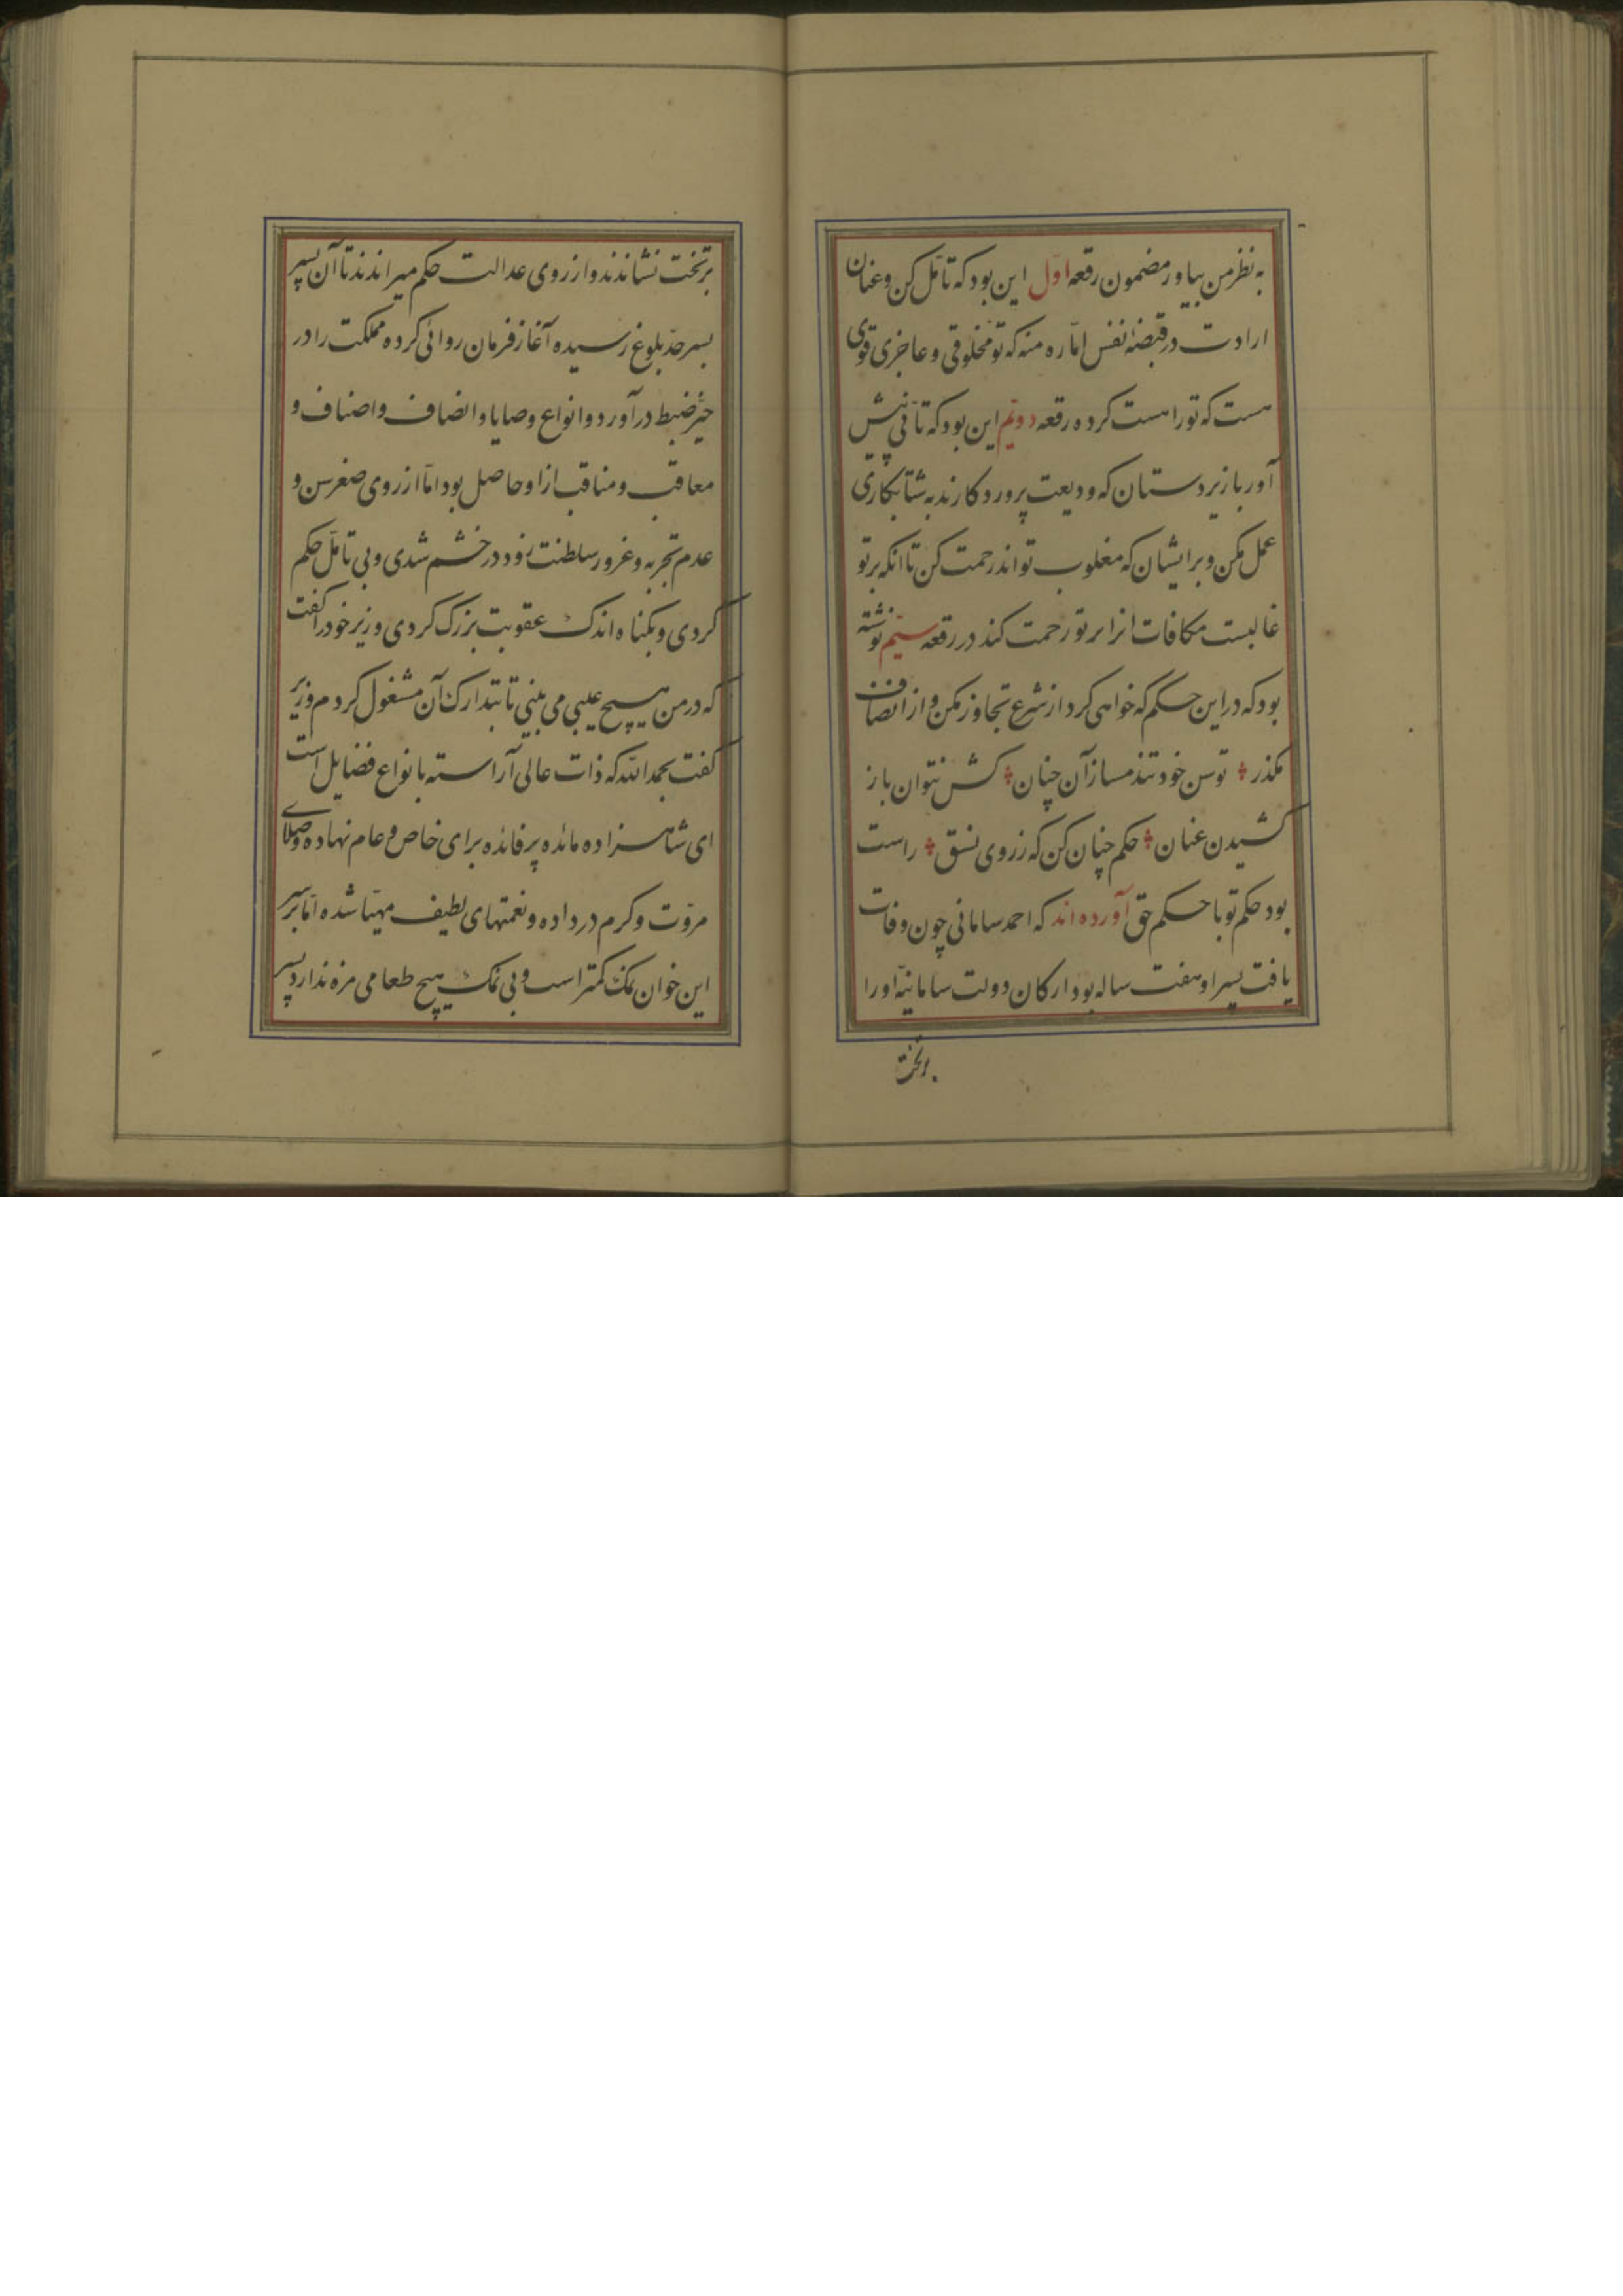 به نظر من بیاور مضمون رقعه اول این بود که تأمل کن و عنان
ارادت در قبضهٔ نفس امّاره منه که تو مخلوقی و عاجزی قوی
هست که تو را هست کرده رقعه دویّم این بود که تأنّی پیش
آور با زیردستان که ودیعت پروردکارند به شتابکاری
عمل مکن و بر ایشان که مغلوب تواند رحمت کن تا انکه بر تو
غالبست مکافات انرا بر تو رحمت کند در رقعه سیّم نوشته
بود که در این حکم که خواهی کرد از شرع تجاوز مکن و از انصاف
مکذر توسن خود تند مساز آن چنان کش نتوان باز
کشیدن عنان حکم چنان کن که ز روی نسق راست
بود حکم تو با حکم حق آورده‌اند که احمد سامانی چون وفات
یافت پسر او هفت ساله بود ارکان دولت سامانیّه او را
برتخت
بر تخت نشاندند و از روی عدالت حکم میراندند تا آن پسر
بسر حدّ بلوغ رسیده آغاز فرمان روائی کرده مملکت را در
حیّز ضبط درآورد و انواع وصایا و انصاف و اصناف و
معاقب و مناقب از او حاصل بود امّا از روی صغر سن و
عدم تجربه و غرور سلطنت زود در خشم شدی و بی تأمّل حکم
کردی و بکناه اندک عقوبت بزرک کردی وزیر خود را کفت
که در من هیچ عیبی می بینی تا بتدارک آن مشغول کردم وزیر
کفت بحمدالله که ذات عالی آراسته بانواع فضایل است
ای شاهزاده مائده پر فائده برای خاص و عام نهاده و صلای
مروّت و کرم در داده و نعمتهای لطیف مهیّا شده امّا بر سر
این خوان نمک کمتر است و بی نمک هیچ طعامی مزه ندارد پسر